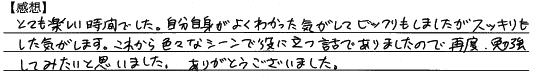 【感想】
とても楽しい時間でした。自分自身がよくわかった気がしてビックリもしましたがスッキリも
した気がします。これから色々なシーンで役に立つ話でありましたので、再度、勉強
してみたいと思いました。ありがとうございました。